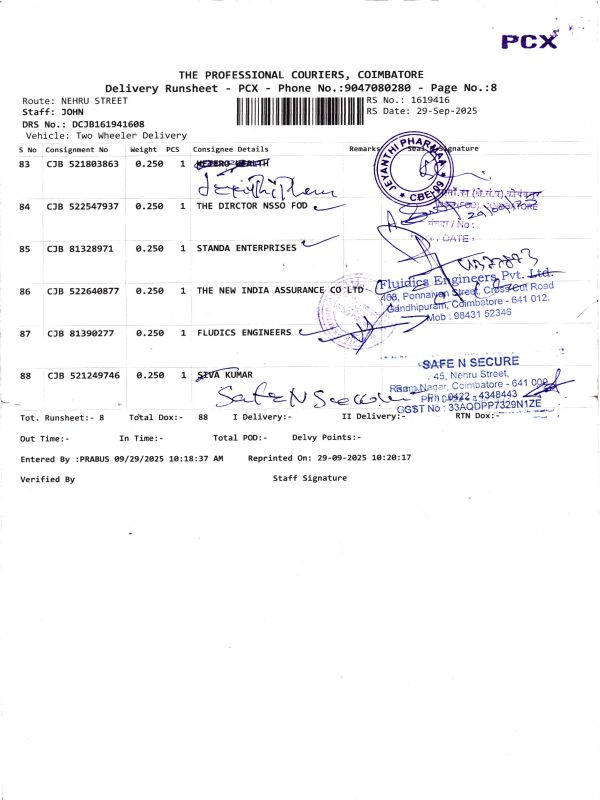 PCX
THE PROFESSIONAL COURIERS, COIMBATORE
Delivery Runsheet - PCX - Phone No.:9047080280 - Page No.:8
Route: NEHRU STREET RS No.: 1619416
Staff: JOHN RS Date: 29-Sep-2025
DRS No.: DCJB161941608
Vehicle: Two Wheeler Delivery
S No Consignment No Weight PCS Consignee Details Remarks Seal Signature
83 CJB 521803863 0.250 1 HEALTH
JEYANTHI PHARMAA CBE-09
84 CJB 522547937 0.250 1 THE DIRCTOR NSSO FOD
DATE:
85 CJB 81328971 0.250 1 STANDA ENTERPRISES
86 CJB 522640877 0.250 1 THE NEW INDIA ASSURANCE CO LTD
Fluidics Engineers Pvt. Ltd.
468, Ponnaiyan Street, Cross Cut Road
Gandhipuram, Coimbatore - 641 012.
Mob : 98431 52346
87 CJB 81390277 0.250 1 FLUDICS ENGINEERS
88 CJB 521249746 0.250 1 SIVA KUMAR
Safe N Secure
SAFE N SECURE
45, Nehru Street,
Ram Nagar, Coimbatore - 641 009
Ph : 0422 - 4348443
GGST No : 33AQDPP7329N1ZE
Tot. Runsheet:- 8 Total Dox:- 88 I Delivery:- II Delivery:- RTN Dox:-
Out Time:- In Time:- Total POD:- Delvy Points:-
Entered By :PRABUS 09/29/2025 10:18:37 AM Reprinted On: 29-09-2025 10:20:17
Verified By Staff Signature